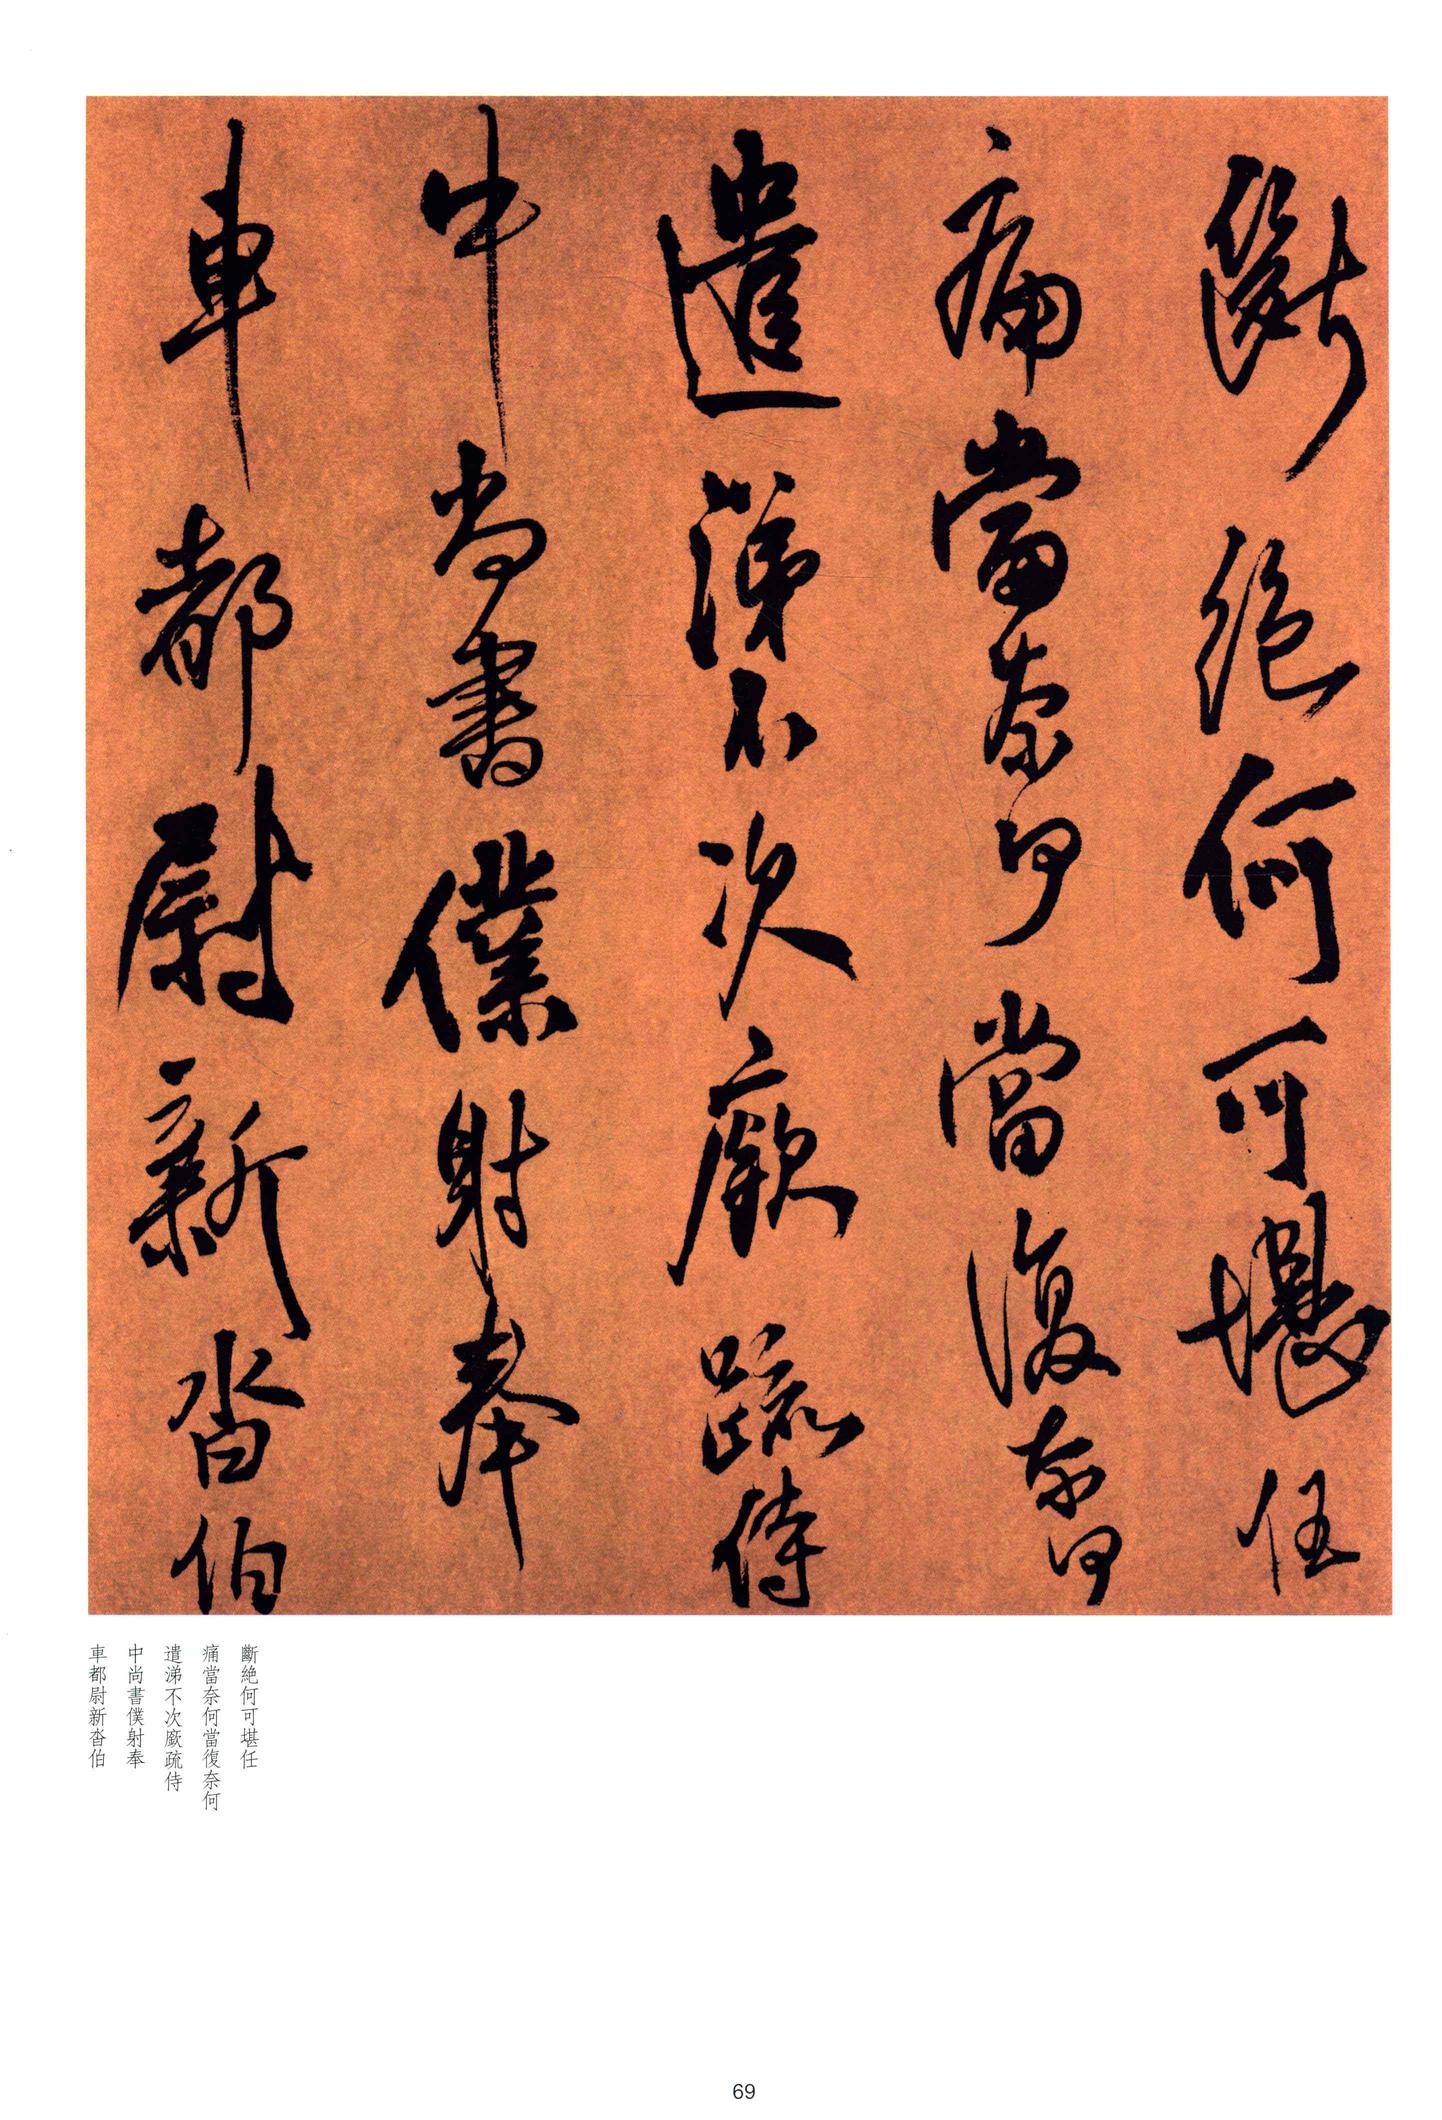 斷絶何可堪任
痛當奈何當復奈何
遣涕不次廞疏侍
中尚書僕射奉
車都尉新沓伯
斷絶何可堪任
痛當奈何當復奈何
遣涕不次廞疏侍
中尚書僕射奉
車都尉新沓伯
69